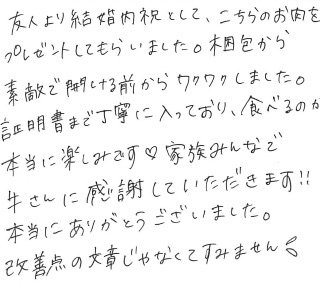 友人より結婚内祝として、こちらのお肉を
プレゼントしてもらいました。梱包から
素敵で開ける前からワクワクしました。
証明書まで丁寧に入っており、食べるのが
本当に楽しみです♡家族みんなで
牛さんに感謝していただきます!!
本当にありがとうございました。
改善点の文章じゃなくてすみません